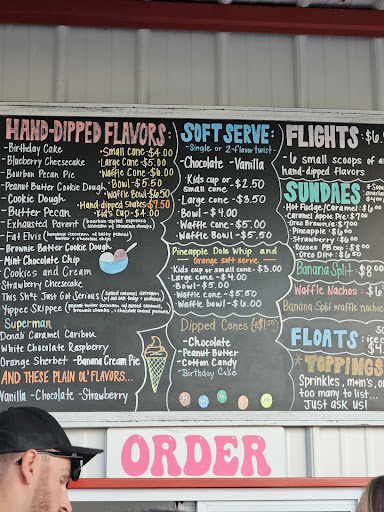 HAND-DIPPED FLAVORS:
-Birthday Cake
-Blueberry Cheesecake
-Bourbon Pecan Pie
-Peanut Butter Cookie Dough
-Cookie Dough
-Butter Pecan
-Exhausted Parent
-Fat Elvi
-Brownie Batter Cookie Dough
-Mint Chocolate Chip
-Cookies and Cream
-Strawberry Cheesecake
This Sh*t Just Got Serious
Yippee Skippee
Superman
Denali Caramel Caribou
White Chocolate Raspberry
Orange Sherbet -Banana Cream Pie
AND THESE PLAIN OL' FLAVORS...
Vanilla -Chocolate -Strawberry
•Small Cone-$4.00
•Large Cone-$5.00
•Waffle Cone-$6.00
•Bowl-$5.50
•Waffle Bowl-$6.50
•Hand-dipped Shakes $7.50
•Kids Cup-$4.00
SOFT SERVE:
-Single or 2-flavor twist-
-Chocolate -Vanilla
·Kids cup or small cone -$2.50
·Large cone -$3.50
·Bowl -$4.00
·Waffle Cone -$5.00
·Waffle Bowl -$5.50
Pineapple Dole Whip and
Orange soft serve-
·Kids cup or small cone -$3.00
·Large cone -$4.00
·Bowl -$5.00
·Waffle cone -$5.50
·Waffle bowl -$6.00
Dipped Cones
-Chocolate
-Peanut Butter
-Cotton Candy
-Birthday Cake
FLIGHTS:
6 small scoops of
hand-dipped flavors
SUNDAES
·Hot Fudge/Caramel
·Caramel Apple Pie
·Oreo Brownie
·Pineapple
·Strawberry
·Oreo Dirt
Banana Split
Waffle Nachos
Banana Split waffle nachos
FLOATS:
*TOPPINGS
Sprinkles, m+m's,
too many to list...
Just ask us!
ORDER